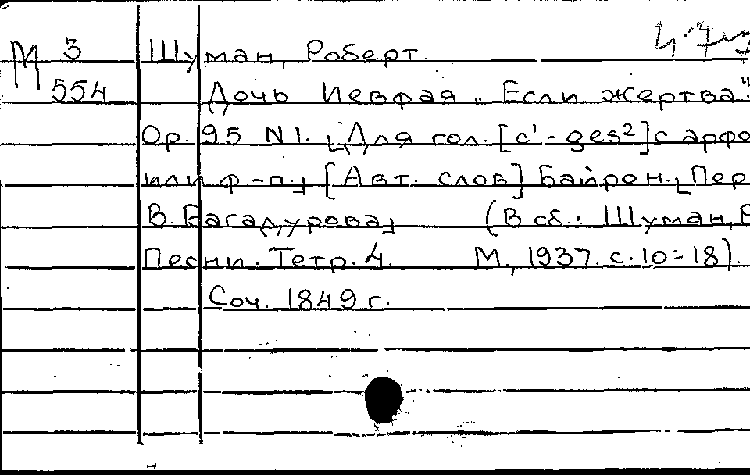 М 3 Шуман, Роберт.
554 Дочь Иевфая „Если жертва"
Op. 95 N1. [Для гол. [c¹-ges²] с арфо
или ф-п.] [Авт. слов] Байрон. [Пер
В. Багадурова] (В сб.: Шуман,
Песни. Тетр. 4. М., 1937. с. 10-18).
Соч. 1849 г.